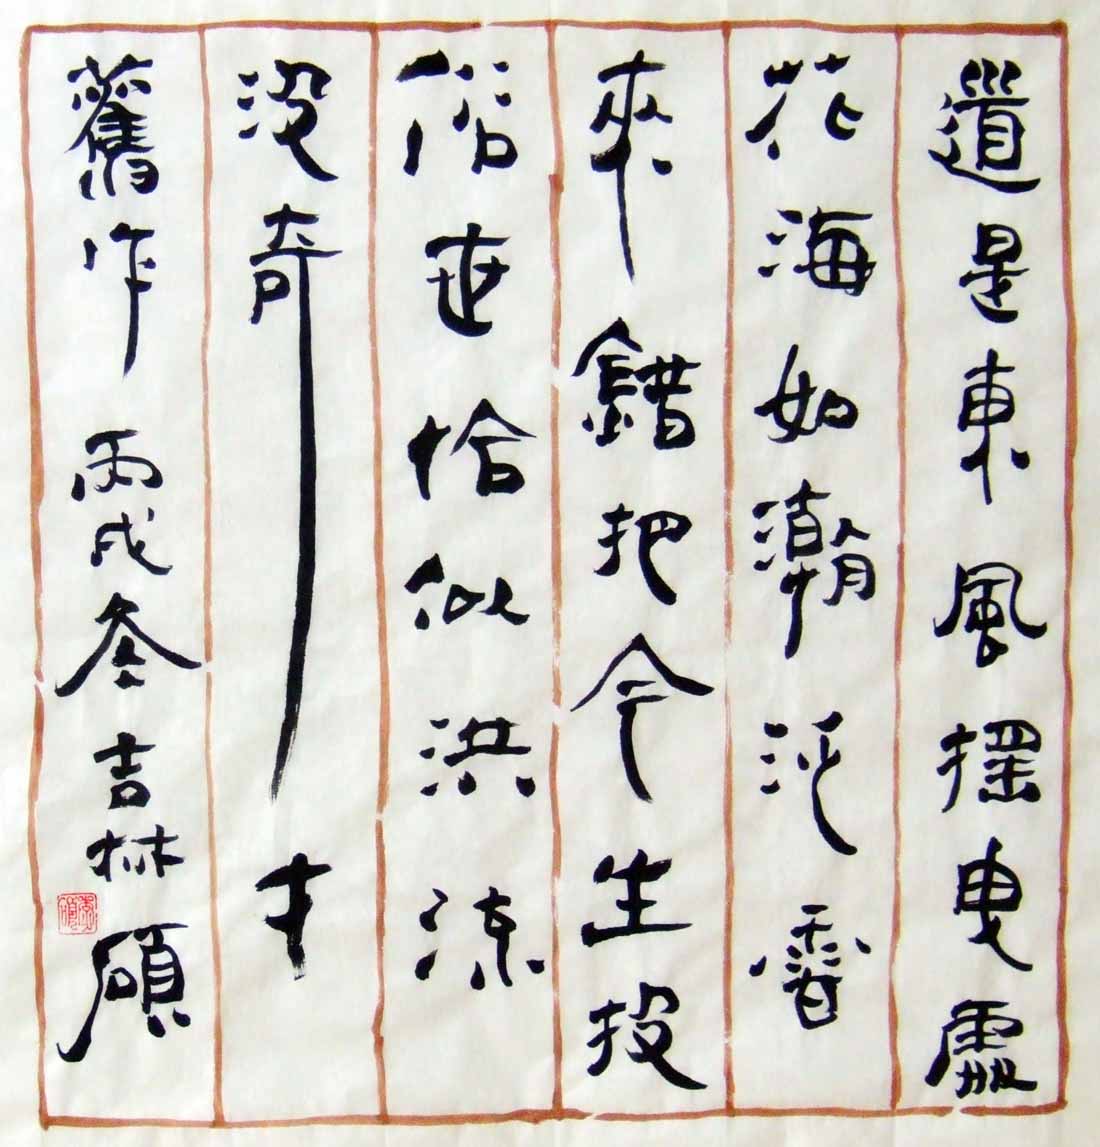 道是東風搖曳處
花海如潮泛香
來錯把今生投
俗世恰似洪流
没奇才
舊作 丙戌冬吉林碩